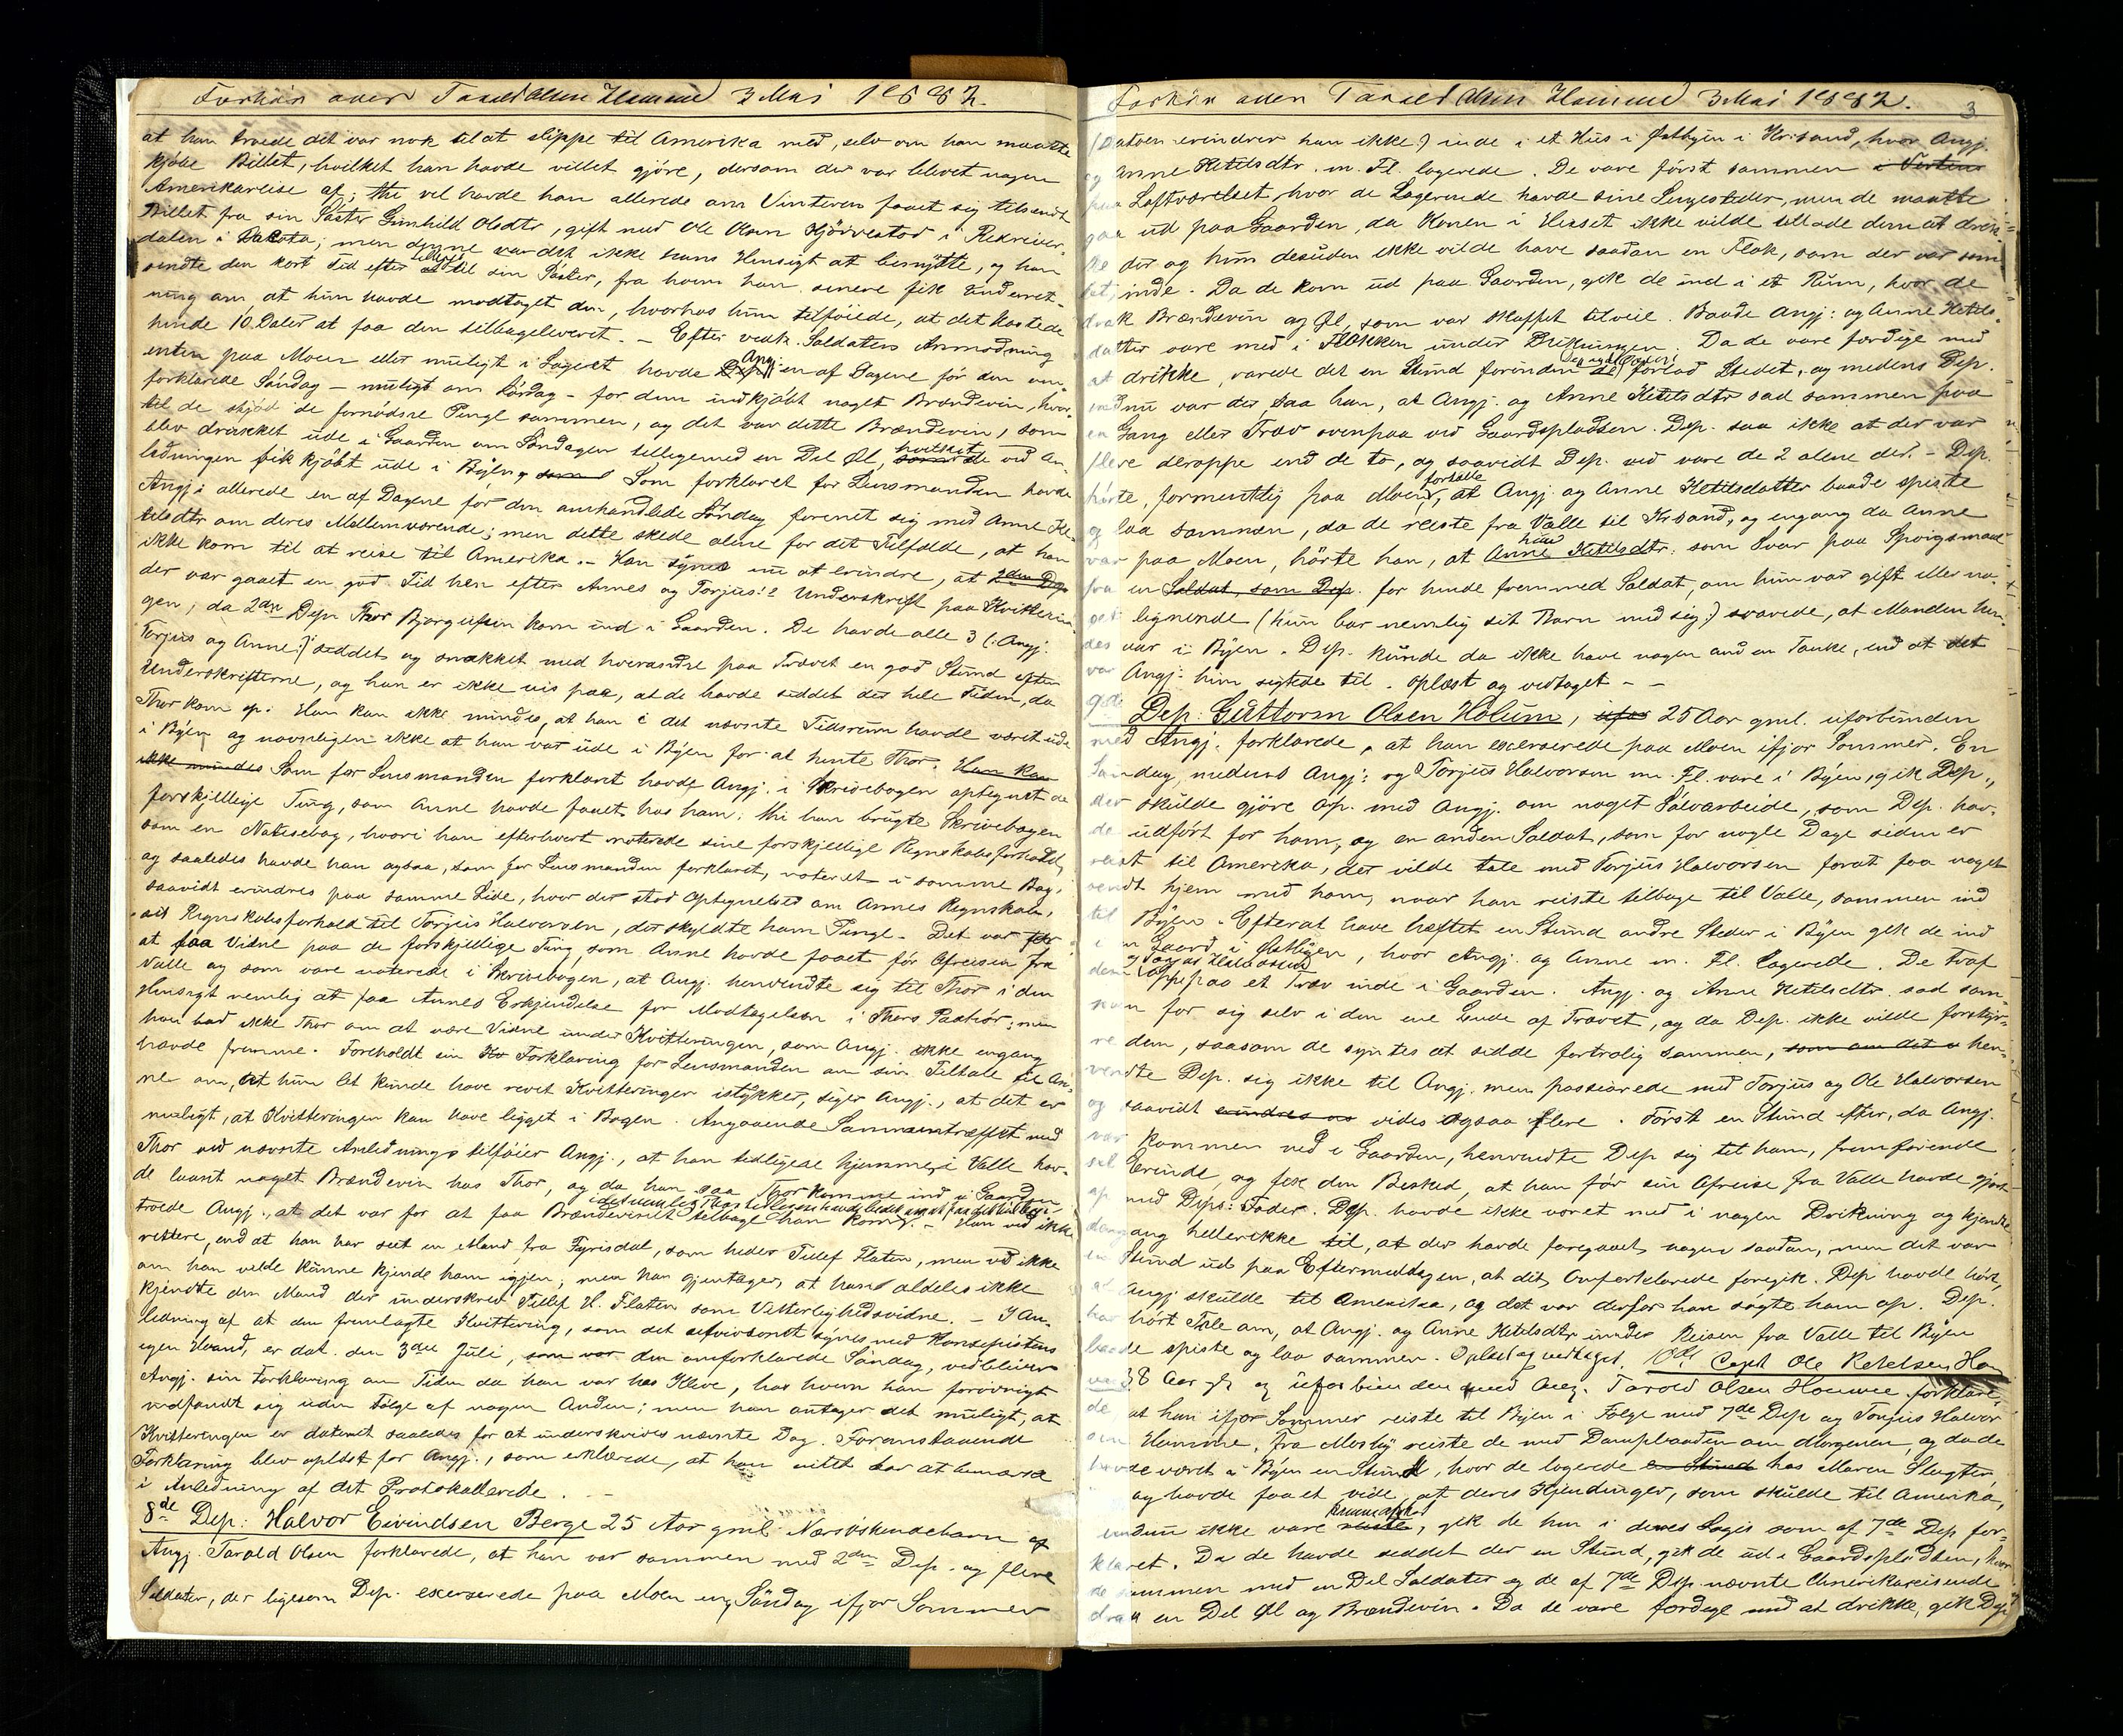 Forhör over Tarald Olsen Homme 3 Mai 1882.
at han troede det var nok til at slippe til Amerika med, selv om han maatte
kjöbe Billet, hvilket han havde villet gjöre, dersom der var blevet nogen
Amerikareise af; thi vel havde han allerede om Vinteren faaet sig tilsendt
Billet fra sin Söster Gunhild Olsdtr, gift med Ole Olsen Kjörvestad i
dalen i Dakota; men denne var det ikke hans Hensigt at benytte, og han
sendte den kort Tid efter til sin Söster, fra hvem han senere fik Underret-
ning om, at hun havde modtaget den, hvorhos hun tilföiede, at det kostede
hende 10 Daler at faa den tilbageleveret. - Efter vedk. Soldaters Anmodning
enten paa Moen eller muligt i Logiet havde Angj. en af Dagene för den om-
forklarede Söndag - muligt om Lördag - for dem indkjöbt noget Brændevin, hvor-
til de skjöd de fornödne Penge sammen, og det var dette Brændevin, som
blev drukket ude i Gaarden om Söndagen tilligemed en Del Öl, hvilket de ved An-
ledningen fik kjöbt ude i Byen, Som forklaret for Lensmanden havde
Angj. allerede en af Dagene för den omhandlede Söndag forenet sig med Anne Ke-
tilsdtr om deres Mellemværende; men dette skede alene for det Tilfælde, at han
ikke kom til at reise til Amerika. - Han synes nu at erindre, at 2den Dep
der var gaaet en god Tid hen efter Annes og Torjus's Underskrift paa Kvitterin-
gen, da 2den Dep Thor Bjorgufsen kom ind i Gaarden. De havde alle 3 (: Angj.
Torjus og Anne:) siddet og snakket med hverandre paa Travet en god Stund efter
Underskrifterne, og han er ikke vis paa, at de havde siddet der hele Tiden, da
Thor kom op. Han kan ikke mindes, at han i det nævnte Tidsrum havde været ude
i Byen og navnligen ikke at han var ude i Byen for at hente Thor. Han kan
ikke mindes Som for Lensmanden forklaret havde Angj. i Skrivebogen optegnet de
forskjellige Ting, som Anne havde faaet hos ham; thi han brugte Skrivebogen
som en Notisebog, hvori han efterhvert noterede sine forskjellige Regnskabsforhold,
og saaledes havde han ogsaa, som for Lensmanden forklaret, noteret i samme Bog,
saavidt erindres paa samme Side, hvor der stod Optegnelser om Annes Regnskab,
sit Regnskabsforhold til Torjus Halvorsen, der skyldte ham Penge. Det var for
at faa Vidne paa de forskjellige Ting, som Anne havde faaet för Afreisen fra
Valle og som vare noterede i Skrivebogen, at Angj. henvendte sig til Thor i den
Hensigt nemlig at faa Annes Erkjendelse for Modtagelsen i Thors Paahör; men
han bad ikke Thor om at være Vidne under Kvitteringen, som Angj. ikke engang
havde fremme. Foreholdt sin Forklaring for Lensmanden om sin Tiltale til An-
ne om, at hun let kunde have revet Kvitteringen istykker, siger Angj., at det er
muligt, at Kvitteringen kan have ligget i Bogen. Angaaende Sammentræffet med
Thor ved nævnte Anledning tilföier Angj., at han tidligere hjemme i Valle hav-
de laant noget Brændevin hos Thor, og da han saa Thor komme ind i Gaarden
troede Angj., at det var for at faa Brændevinet tilbage han kom, idet nemlig Thor tidligere havde bedt om at faa det tilbage. - Han ved ikke
rettere, end at han har seet en Mand fra Fyrisdal, som heder Tellef Flaten, men ved ikke
om han vilde kunne kjende ham igjen; men han gjentager, at han aldeles ikke
kjendte den Mand der underskrev Tellef H. Flaten som Vitterlighedsvidne. - I An-
ledning af at den fremlagte Kvittering, som det synes med Koncipistens
egen Haand, er dat. den 3die Juli, som var den omforklarede Söndag, vedbliver
Angj. sin Forklaring om Tiden da han var hos Kleve, hos hvem han forövrigt
indfandt sig uden Fölge af nogen Anden; men han antager det muligt, at
Kvitteringen er dateret saaledes for at underskrives nævnte Dag. Foranstaaende
Forklaring blev oplæst for Angj., som erklærede, at han intet har at bemærke
i Anledning af det Protokollerede. -
8de Dep: Halvor Eivindsen Berge 25 Aar gml. Næstsödskendebarn af
Angj. Tarald Olsen forklarede, at han var sammen med 2den Dep. og flere
Soldater, der ligesom Dep. exercerede paa Moen en Söndag ifjor Sommer
Forhör over Tarald Olsen Homme 3 Mai 1882. 3
(Datoen erindrer han ikke) inde i et Hus i Östbyen i Krsand, hvor Angj.
og Anne Ketilsdtr. m. Fl. logerede. De vare först sammen i Vertens
paa Loftværelset, hvor de Logerende havde sine Sengesteder, men de maatte
gaa ud paa Gaarden, da Konen i Huset ikke vilde tillade dem at drik-
ke der og hun desuden ikke vilde have saadan en Flok, som der var sam-
let, inde. Da de kom ud paa Gaarden, gik de ind i et Rum, hvor de
drak Brændevin og Öl, som var skaffet tilveie. Baade Angj: og Anne Ketils-
datter vare med i Flokken under Drikningen. Da de vare færdige med
at drikke, varede det en Stund forinden de forlod Stedet, og medens Dep.
endnu var der, saa han, at Angj. og Anne Ketilsdtr sad sammen paa
en Gang eller Trav ovenpaa ved Gaardspladsen. Dep. saa ikke at der var
flere deroppe end de to, og saavidt Dep. ved vare de 2 alene der. - Dep.
hörte, formentlig paa Moen, fortælle, at Angj. og Anne Ketilsdatter baade spiste
og laa sammen, da de reiste fra Valle til Krsand, og engang da Anne
var paa Moen, hörte han, at hun som Svar paa Spörgsmaal
fra en Soldat, som Dep. for hende fremmed Soldat, om hun var gift eller no-
get lignende (hun bar nemlig sit Barn med sig:) svarede, at Manden hen-
des var i Byen. Dep. kunde da ikke have nogen anden Tanke, end at det
var Angj: hun sigtede til. Oplæst og vedtaget - -
9de Dep: Guttorm Olsen Holum, 25 Aar gml. uforbunden
med Angj. forklarede, at han exercerede paa Moen ifjor Sommer. En
Söndag, medens Angj: og Torjus Halvorsen m. Fl. vare i Byen, gik Dep.,
der skulde gjöre op. med Angj. om noget Sölvarbeide, som Dep. hav-
de udfört for ham, og en anden Soldat, som for nogle Dage siden er
reist til Amerika, der vilde tale med Torjus Halvorsen forat faa noget
sendt hjem med ham, naar han reiste tilbage til Valle, sammen ind
til Byen. Efterat have heftet en Stund andre Steder i Byen gik de ind
i en Gaard i Östbyen, hvor Angj. og Anne m. Fl. logerede. De traf
dem oppe paa et Trav inde i Gaarden. Angj. og Anne Ketilsdtr. sad sam-
men for sig selv i den ene Ende af Travet, og da Dep. ikke vilde forstyr-
re dem, saasom de syntes at sidde fortrolig sammen, som om det hen-
vendte Dep. sig ikke til Angj. men passiarede med Torjus og Ole Halvorsen
og saavidt vides ogsaa flere. Först en Stund efter, da Angj.
var kommen ned i Gaarden, henvendte Dep sig til ham, fremförende
sit Erinde, og fik den Besked, at han för sin Afreise fra Valle havde gjort
op med Deps: Fader. Dep. havde ikke været med i nogen Drikning og kjendte
dengang hellerikke til, at der havde foregaaet nogen saadan, men det var
en Stund ud paa Eftermiddagen, at det Omforklarede foregik. Dep havde hört,
at Angj skulde til Amerika, og det var derfor han sögte ham op. Dep.
har hört Tale om, at Angj. og Anne Ketilsdtr under Reisen fra Valle til Byen
baade spiste og laa sammen. Oplæst og vedtaget. 10de Dep Ole Ketelsen Hom
38 Aar gl. og uforbunden med Ang. Tarold Olsen Homme forklare-
de, at han ifjor Sommer reiste til Byen i Fölge med 7de Dep og Torjus Halvor
sen Homme, fra Mosby reiste de med Dampbaaden om Morgenen, og da de
havde været i Byen en Stund, hvor de logerede en Stund hos Maren Slagter,
og havde faaet vide, at deres Kjendinger, som skulde til Amerika,
endnu ikke vare reiste, gik de hen i deres Logis som af 7de Dep for-
klaret. Da de havde siddet der en Stund, gik de ud i Gaardspladsen, hvor
de sammen med en Del Soldater og de af 7de Dep nævnte Amerikareisende
drak en Del Öl og Brændevin. Da de vare færdige med at drikke, gik Dep